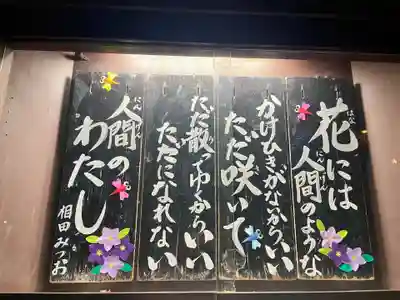 花には
人間のような
かけひきがないからいい
ただ咲いて
ただ散ってゆくからいい
ただになれない
人間の
わたし
相田みつを